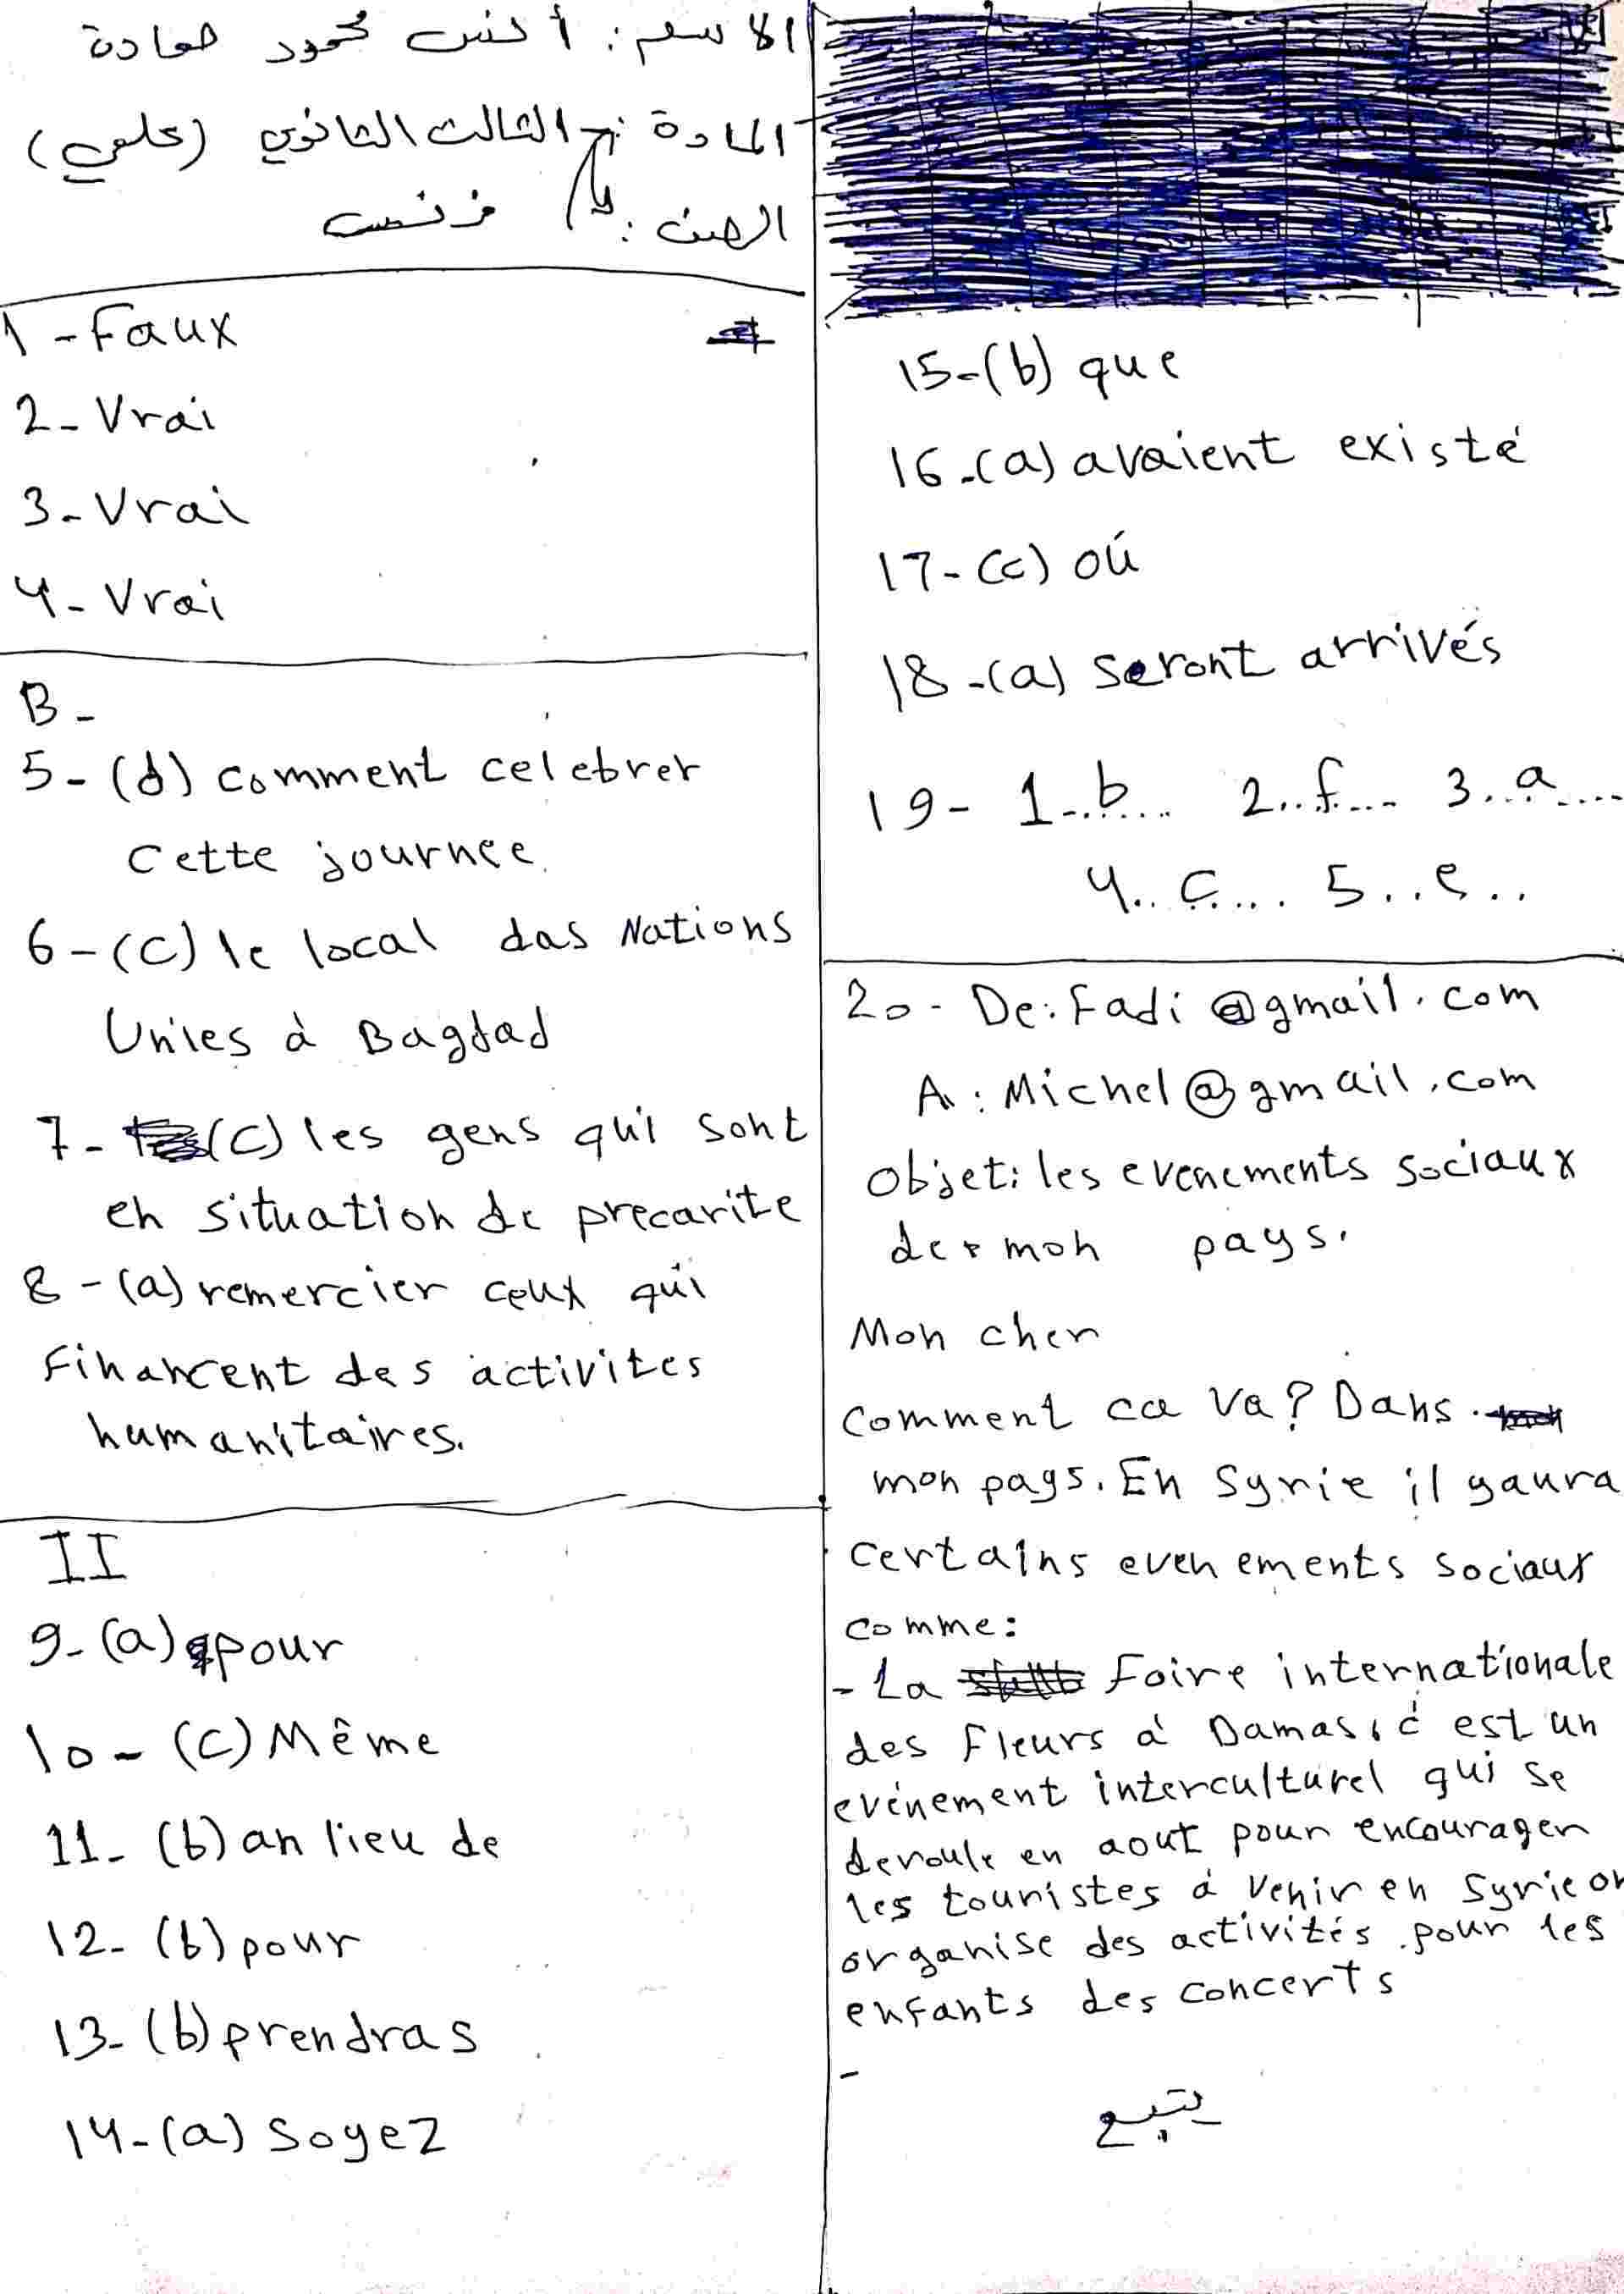 الاسم: أنس محمود حمادة
المادة: الثالث الثانوي (علمي)
الصف: فرنسي
1 - Faux
2 - Vrai
3 - Vrai
4 - Vrai
B -
5 - (d) comment celebrer
cette journee.
6 - (c) le local das Nations
Unies à Bagdad
7 - (c) les gens qui sont
en situation de precarite
8 - (a) remercier ceux qui
Financent des activites
humanitaires.
II
9 - (a) pour
10 - (c) Même
11 - (b) an lieu de
12 - (b) pour
13 - (b) prendras
14 - (a) Soyez
15 - (b) que
16 - (a) avaient existé
17 - (c) oú
18 - (a) seront arrivés
19 - 1..b.... 2..f.... 3..a....
4..c.... 5...e..
20 - De: Fadi@gmail.com
A: Michel@gmail.com
Objet: les evenements sociaux
de mon pays.
Mon cher
Comment ca va? Dans
mon pays. En Syrie il yaura
certains evenements sociaux
comme:
- La Foire internationale
des Fleurs à Damas, c'est un
evénement interculturel qui se
deroule en aout pour encourager
les touristes à venir en Syrie on
organise des activités pour les
enfants des concerts
-
يتبع